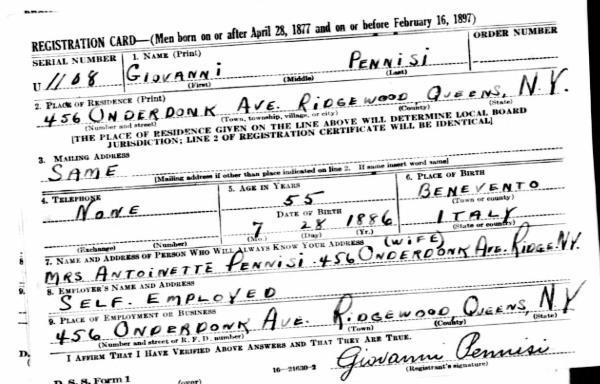 REGISTRATION CARD—(Men born on or after April 28, 1877 and on or before February 16, 1897)
SERIAL NUMBER 1. NAME (Print) ORDER NUMBER
U 1108 GIOVANNI PENNISI
(First) (Middle) (Last)
2. PLACE OF RESIDENCE (Print)
456 ONDERDONK AVE. RIDGEWOOD QUEENS, N.Y.
(Number and street) (Town, township, village, or city) (County) (State)
[THE PLACE OF RESIDENCE GIVEN ON THE LINE ABOVE WILL DETERMINE LOCAL BOARD
JURISDICTION; LINE 2 OF REGISTRATION CERTIFICATE WILL BE IDENTICAL]
3. MAILING ADDRESS
SAME
[Mailing address if other than place indicated on line 2. If same insert word same]
4. TELEPHONE 5. AGE IN YEARS 6. PLACE OF BIRTH
55 BENEVENTO
NONE DATE OF BIRTH (Town or county)
7 28 1886 ITALY
(Exchange) (Number) (Mo.) (Day) (Yr.) (State or country)
7. NAME AND ADDRESS OF PERSON WHO WILL ALWAYS KNOW YOUR ADDRESS (WIFE)
MRS ANTOINETTE PENNISI. 456 ONDERDONK AVE. RIDGE. N.Y.
8. EMPLOYER'S NAME AND ADDRESS
SELF. EMPLOYED
9. PLACE OF EMPLOYMENT OR BUSINESS
456 ONDERDONK AVE. RIDGEWOOD QUEENS, N.Y
(Number and street or R. F. D. number) (Town) (County) (State)
I AFFIRM THAT I HAVE VERIFIED ABOVE ANSWERS AND THAT THEY ARE TRUE.
Giovanni Pennisi
D. S. S. Form 1 (over) 16—21630-2 (Registrant's signature)